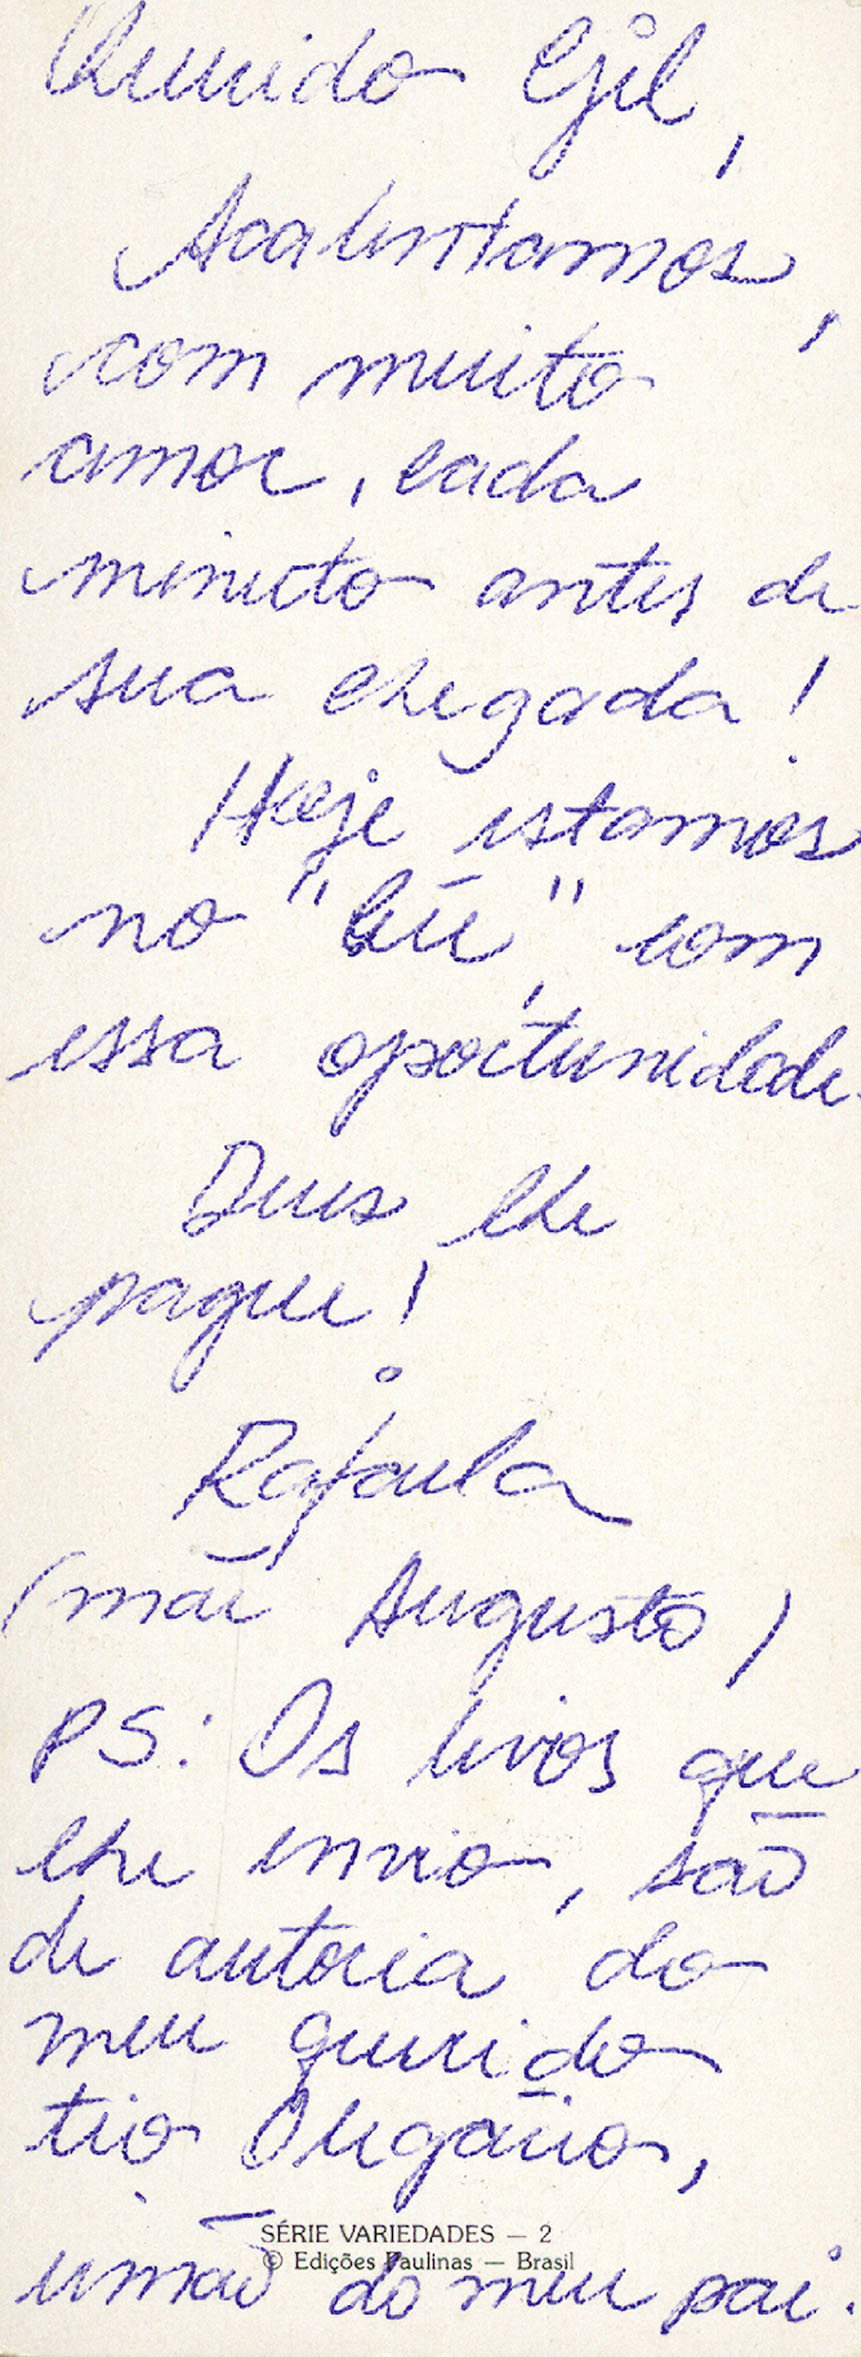 Querido Gil,
Acalentamos,
com muito
amor, cada
minuto antes de
sua chegada!
Hoje estamos
no "céu", com
essa oportunidade.
Deus lhe
pague!
Rafaela
(mãe Augusto)
PS: Os livros que
lhe envio, são
de autoria do
meu querido
tio
SÉRIE VARIEDADES — 2
© Edições Paulinas — Brasil
irmão do meu pai.